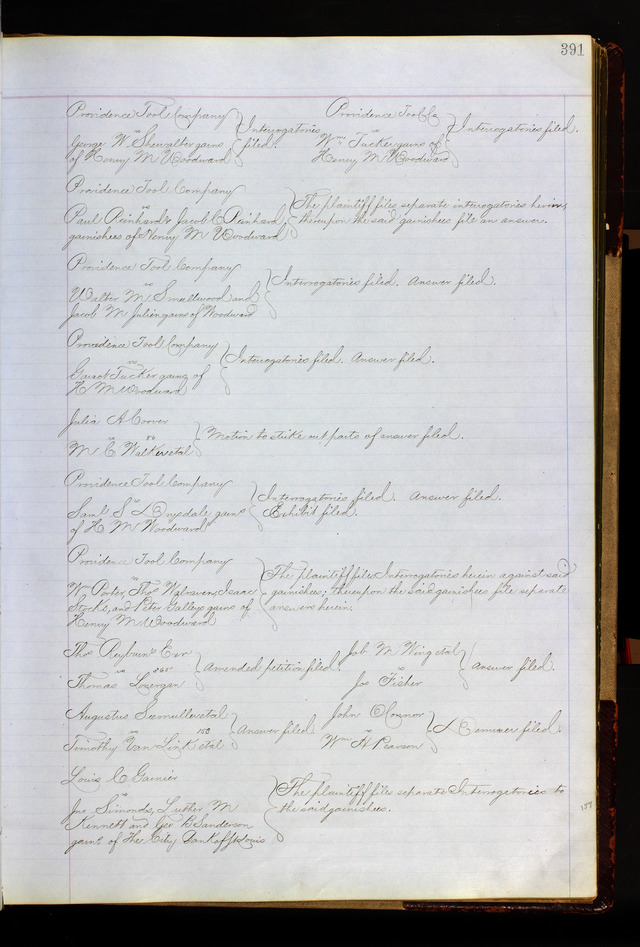 391
Providence Tool Company
vs
George W Shewalter gains
of Henry M Woodward
Interrogatories
filed.
Providence Tool Co
vs
Wm Tucker gains of
Henry M Woodward
Interrogatories filed.
Providence Tool Company
vs
Paul Reinhard & Jacob C Reinhard
garnishees of Henry M Woodward
The plaintiff files separate interrogatories herein,
thereupon the said garnishees file an answer.
Providence Tool Company
vs
Walter M Smallwood and
Jacob M Julien gains of Woodward
Interrogatories filed. Answer filed.
Providence Tool Company
vs
Garrot Tucker gains of
H M Woodward
Interrogatories filed. Answer filed.
Julia A Coover
vs
M C Walker etal
Motion to strike out parts of answer filed.
Providence Tool Company
vs
Saml S gains
of H M Woodward
Interrogatories filed. Answer filed.
Exhibit filed.
Providence Tool Company
vs
Wm Porter, Thos Walraven, Isaac
Stocks, and Peter Galleys gains of
Henry M Woodward
The plaintiff files Interrogatories herein against said
garnishees; thereupon the said garnishees file separate
answers herein.
Thos Reyburns Exr
vs
Thomas Lonergan
Amended petition filed.
Job M Wing etal
vs
Jos Fisher
Answer filed.
Augustus Seemuller etal
vs 150
Timothy Van Link etal
Answer filed
John O Connor
vs
Wm H Pearson
Demurrer filed.
Louis C Garnier
vs
Jno Simonds, Luther M
Kennett and Geo K Sanderson
gains of The City Bank of St Louis
The plaintiff files separate Interrogatories to
the said garnishees.